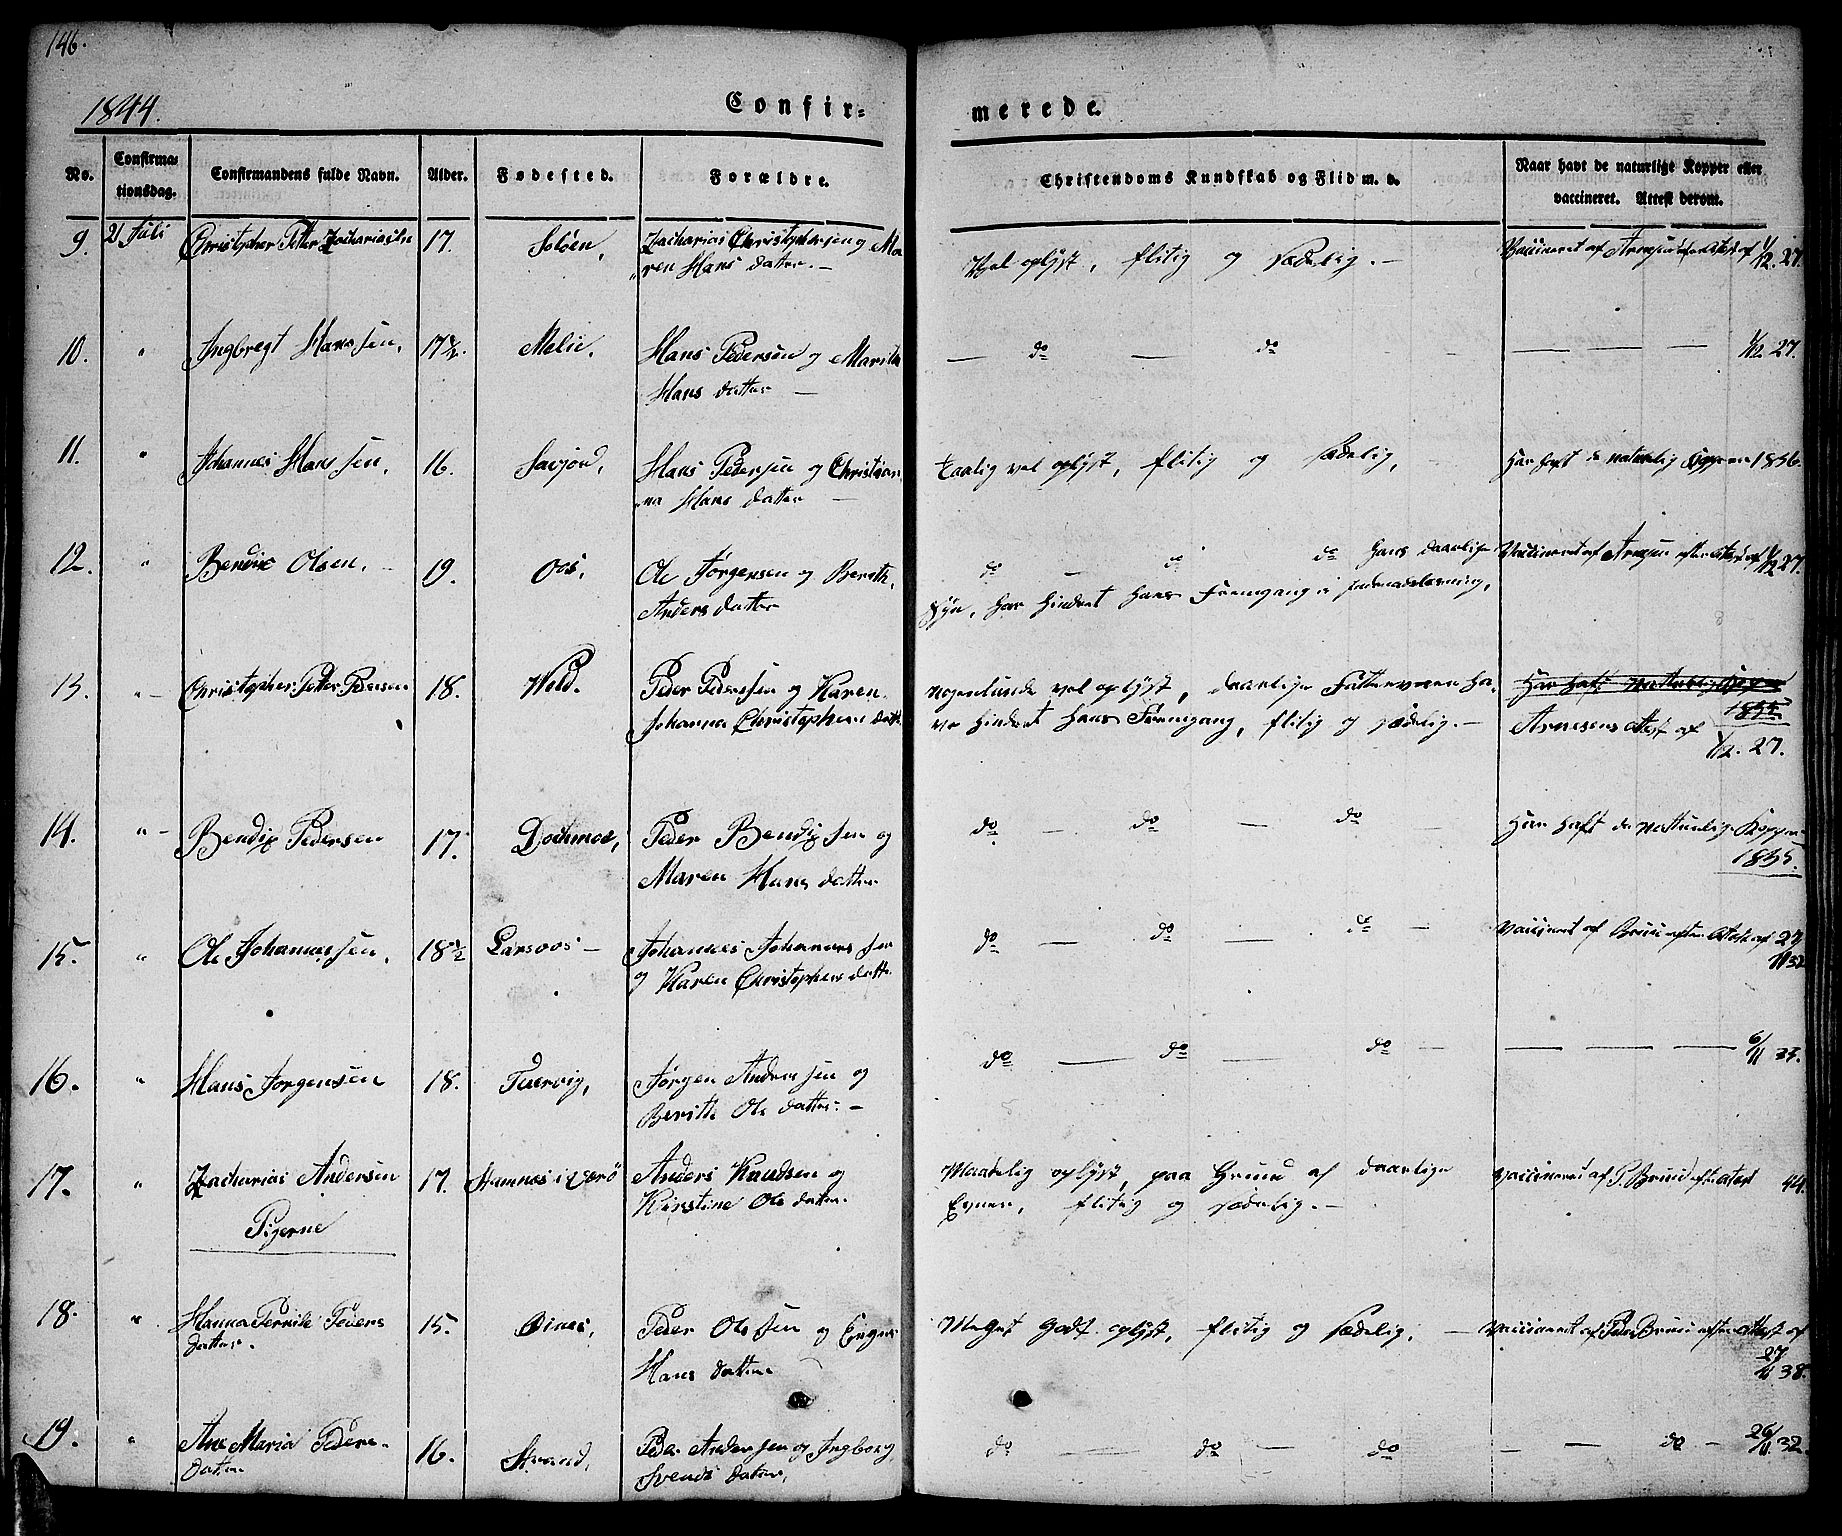 146.
1844.
Confir-
merede.
No.
Confirma-
tionsdag.
Confirmandens fulde Navn.
Alder.
Fødested.
Forældre.
Christendoms Kundskab og Flid m. v.
Naar havt de naturlige Kopper eller
vaccineret. Attest derom.
9. 2 Juli Christopher Petter Zachariassen 17. Soløen, Zacharias Christophersen og Ma-
ren Hans datter. —
Vel oplyst, flittig og sædelig. —
Vaccineret af Arnesen efter Attest af 1/12. 27.
10. " Ingbregt Hanssen, 17½. Melie. Hans Pedersen og Maritha
Hans datter —
— do — do
— — — — 1/12 27.
11. " Johannes Hans sen, 16. Saujord, Hans Pedersen og Christian-
na Hans datter —
taalig vel oplyst, flitig og sædelig,
Har haft de naturlig Kopper 1836.
12. " Bendix Olsen, 19. Oos, Ole Jørgensen og Berith
Anders datter
do — do do hans daarlige
Syn, har hindret hans Fremgang i Indenadslæsning,
Vaccineret af Arnesen efter Attest af 1/12 27.
13. " Christopher Petter Pedersen 18. Wold. Peder Pederssen og Karen
Johanna Christophers datt.
nogenlunde vel oplyst, daarlige Fatteværen ha-
ve hindret hans Fremgang, flitig og sædelig. —
Har haft naturlig Kopper
1835.
Arnesens Attest af
1/12. 27.
14. " Bendix Pedersen 17. Dochmoe, Peder Bendix sen og
Maren Hans datter
do — do — do —
Har haft de naturlige Kopper
1835.
15. " Ole Johannes sen, 18½ Larsoos — Johannes Johannes sen
og Karen Christophers datt.
do — do — do —
vaccineret af Bruu efter Attest af 27/
11 32
16. " Hans Jørgensen 18. Tuervig, Jørgen Anders sen og
Berith Ols datter. —
do — do — do —
— — — — 6/11 37.
17. " Zacharias Andersen 17. Stamnes i Værø Anders Knudsen og
Kirstine Ols datter.
Maadelig oplyst, paa Grund af daarlige
Evner, flitig og sædelig. —
vaccineret af P. Bruu efter attest 44.
Pigerne
18. " Hanna Pernile Peders
datter. 15. Oines, Peder Ols sen og Enger
Hans datter
Meget godt oplyst, flitig og sædelig, —
Vaccineret af Peder Bruu efter Attest af
27/
11 38.
19. " Ane Maria Peders-
datter 16. Strand, Peder Anders sen og Ingborg
Svends datter,
do — do — do
— — do — 26/11 32.